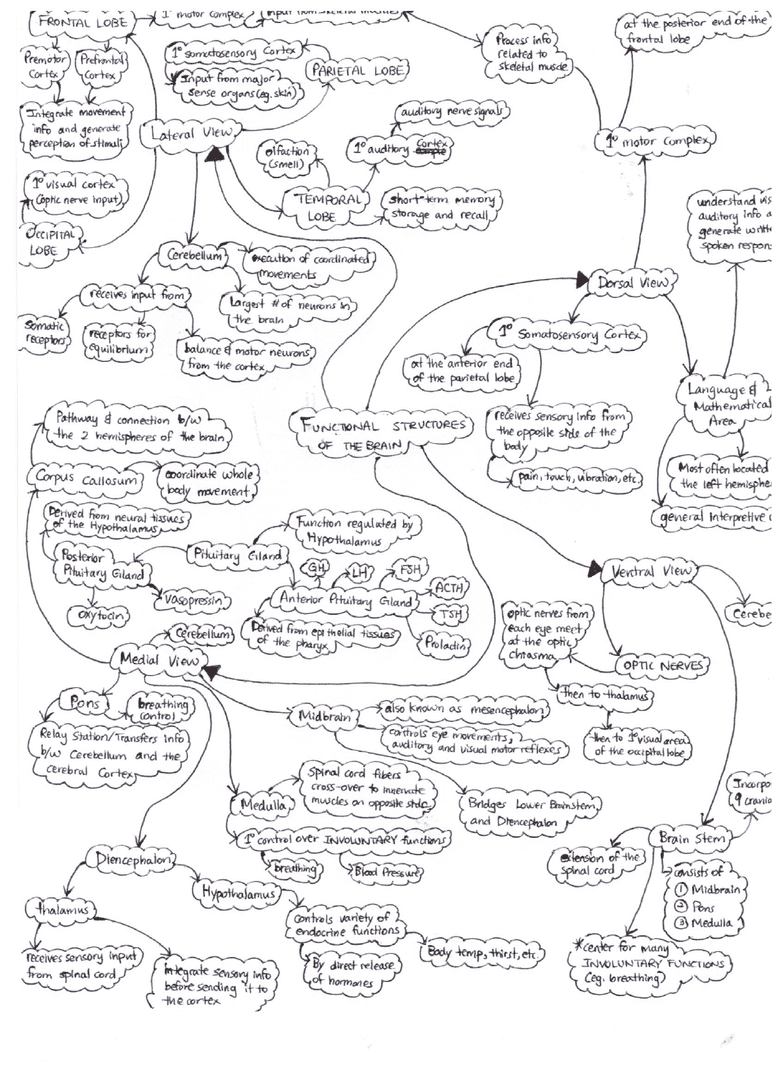 FRONTAL LOBE
1° motor Complex
Premotor
Cortex
Prefrontal
Cortex
Integrate movement
info and generate
perception of stimuli
1° somatosensory Cortex
Input from major
sense organs (eg. skin)
PARIETAL LOBE
Lateral View
auditory nerve signals
1° auditory Cortex
olfaction
(smell)
TEMPORAL
LOBE
short-term memory
storage and recall
1° visual cortex
(optic nerve input)
OCCIPITAL
LOBE
Process info
related to
skeletal muscle
at the posterior end of the
frontal lobe
1° motor complex
understand vis
auditory info a
generate writt
spoken respon
Cerebellum
execution of coordinated
movements
receives input from
Largest # of neurons in
the brain
somatic
receptors
receptors for
equilibrium
balance & motor neurons
from the cortex
Dorsal View
1° Somatosensory Cortex
at the anterior end
of the parietal lobe
receives sensory info from
the opposite side of the
body
pain, touch, vibration, etc.
Language &
Mathematical
Area
Most often located
the left hemisphe
general interpretive
FUNCTIONAL STRUCTURES
OF THE BRAIN
Pathway & connection b/w
the 2 hemispheres of the brain
Corpus Callosum
coordinate whole
body movement
Derived from neural tissues
of the Hypothalamus
Posterior
Pituitary Gland
Pituitary Gland
Function regulated by
Hypothalamus
GH
LH
FSH
ACTH
TSH
Prolactin
Anterior Pituitary Gland
Derived from epithelial tissues
of the pharyx
oxytocin
vasopressin
Cerebellum
Medial View
Ventral View
Cerebe
optic nerves from
each eye meet
at the optic
chiasma
OPTIC NERVES
then to thalamus
then to 1° visual area
of the occipital lobe
Pons
breathing
control
Relay Station/Transfers info
b/w Cerebellum and the
cerebral Cortex
Midbrain
also known as mesencephalon
controls eye movements,
auditory and visual motor reflexes
Bridges Lower Brainstem
and Diencephalon
Medulla
Spinal cord fibers
cross-over to innervate
muscles on opposite side
1° control over INVOLUNTARY functions
breathing
Blood Pressure
Brain Stem
Incorpo
9 crania
extension of the
spinal cord
consists of
① Midbrain
② Pons
③ Medulla
*center for many
INVOLUNTARY FUNCTIONS
(eg. breathing)
Diencephalon
thalamus
Hypothalamus
receives sensory input
from spinal cord
integrate sensory info
before sending it to
the cortex
controls variety of
endocrine functions
By direct release
of hormones
Body temp, thirst, etc